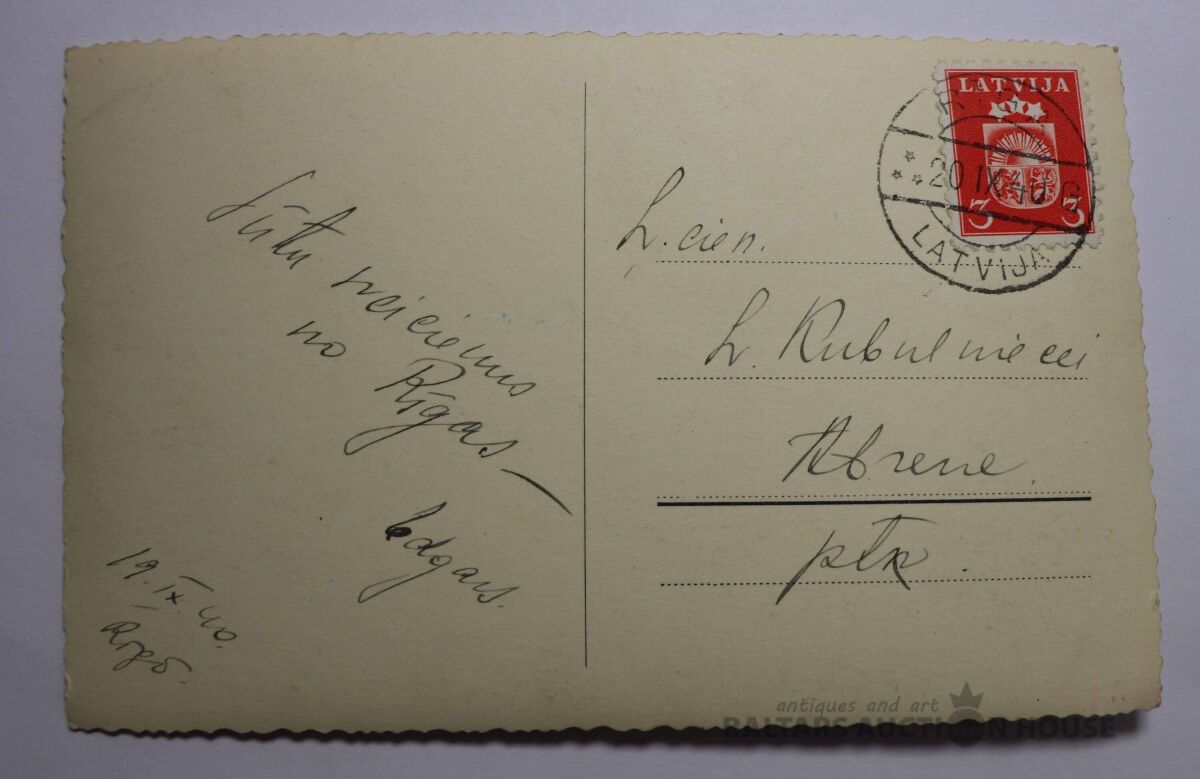 Sūtu sveicienus
no Rīgas
Edgars.
19.IX.40.
Rīgā.
LATVIJA
3 3
20 IX 40 G
LATVIJA
L. cien.
L. Rubulniecei
Abrene
ptk.
antiques and art
BALTARS AUCTION HOUSE